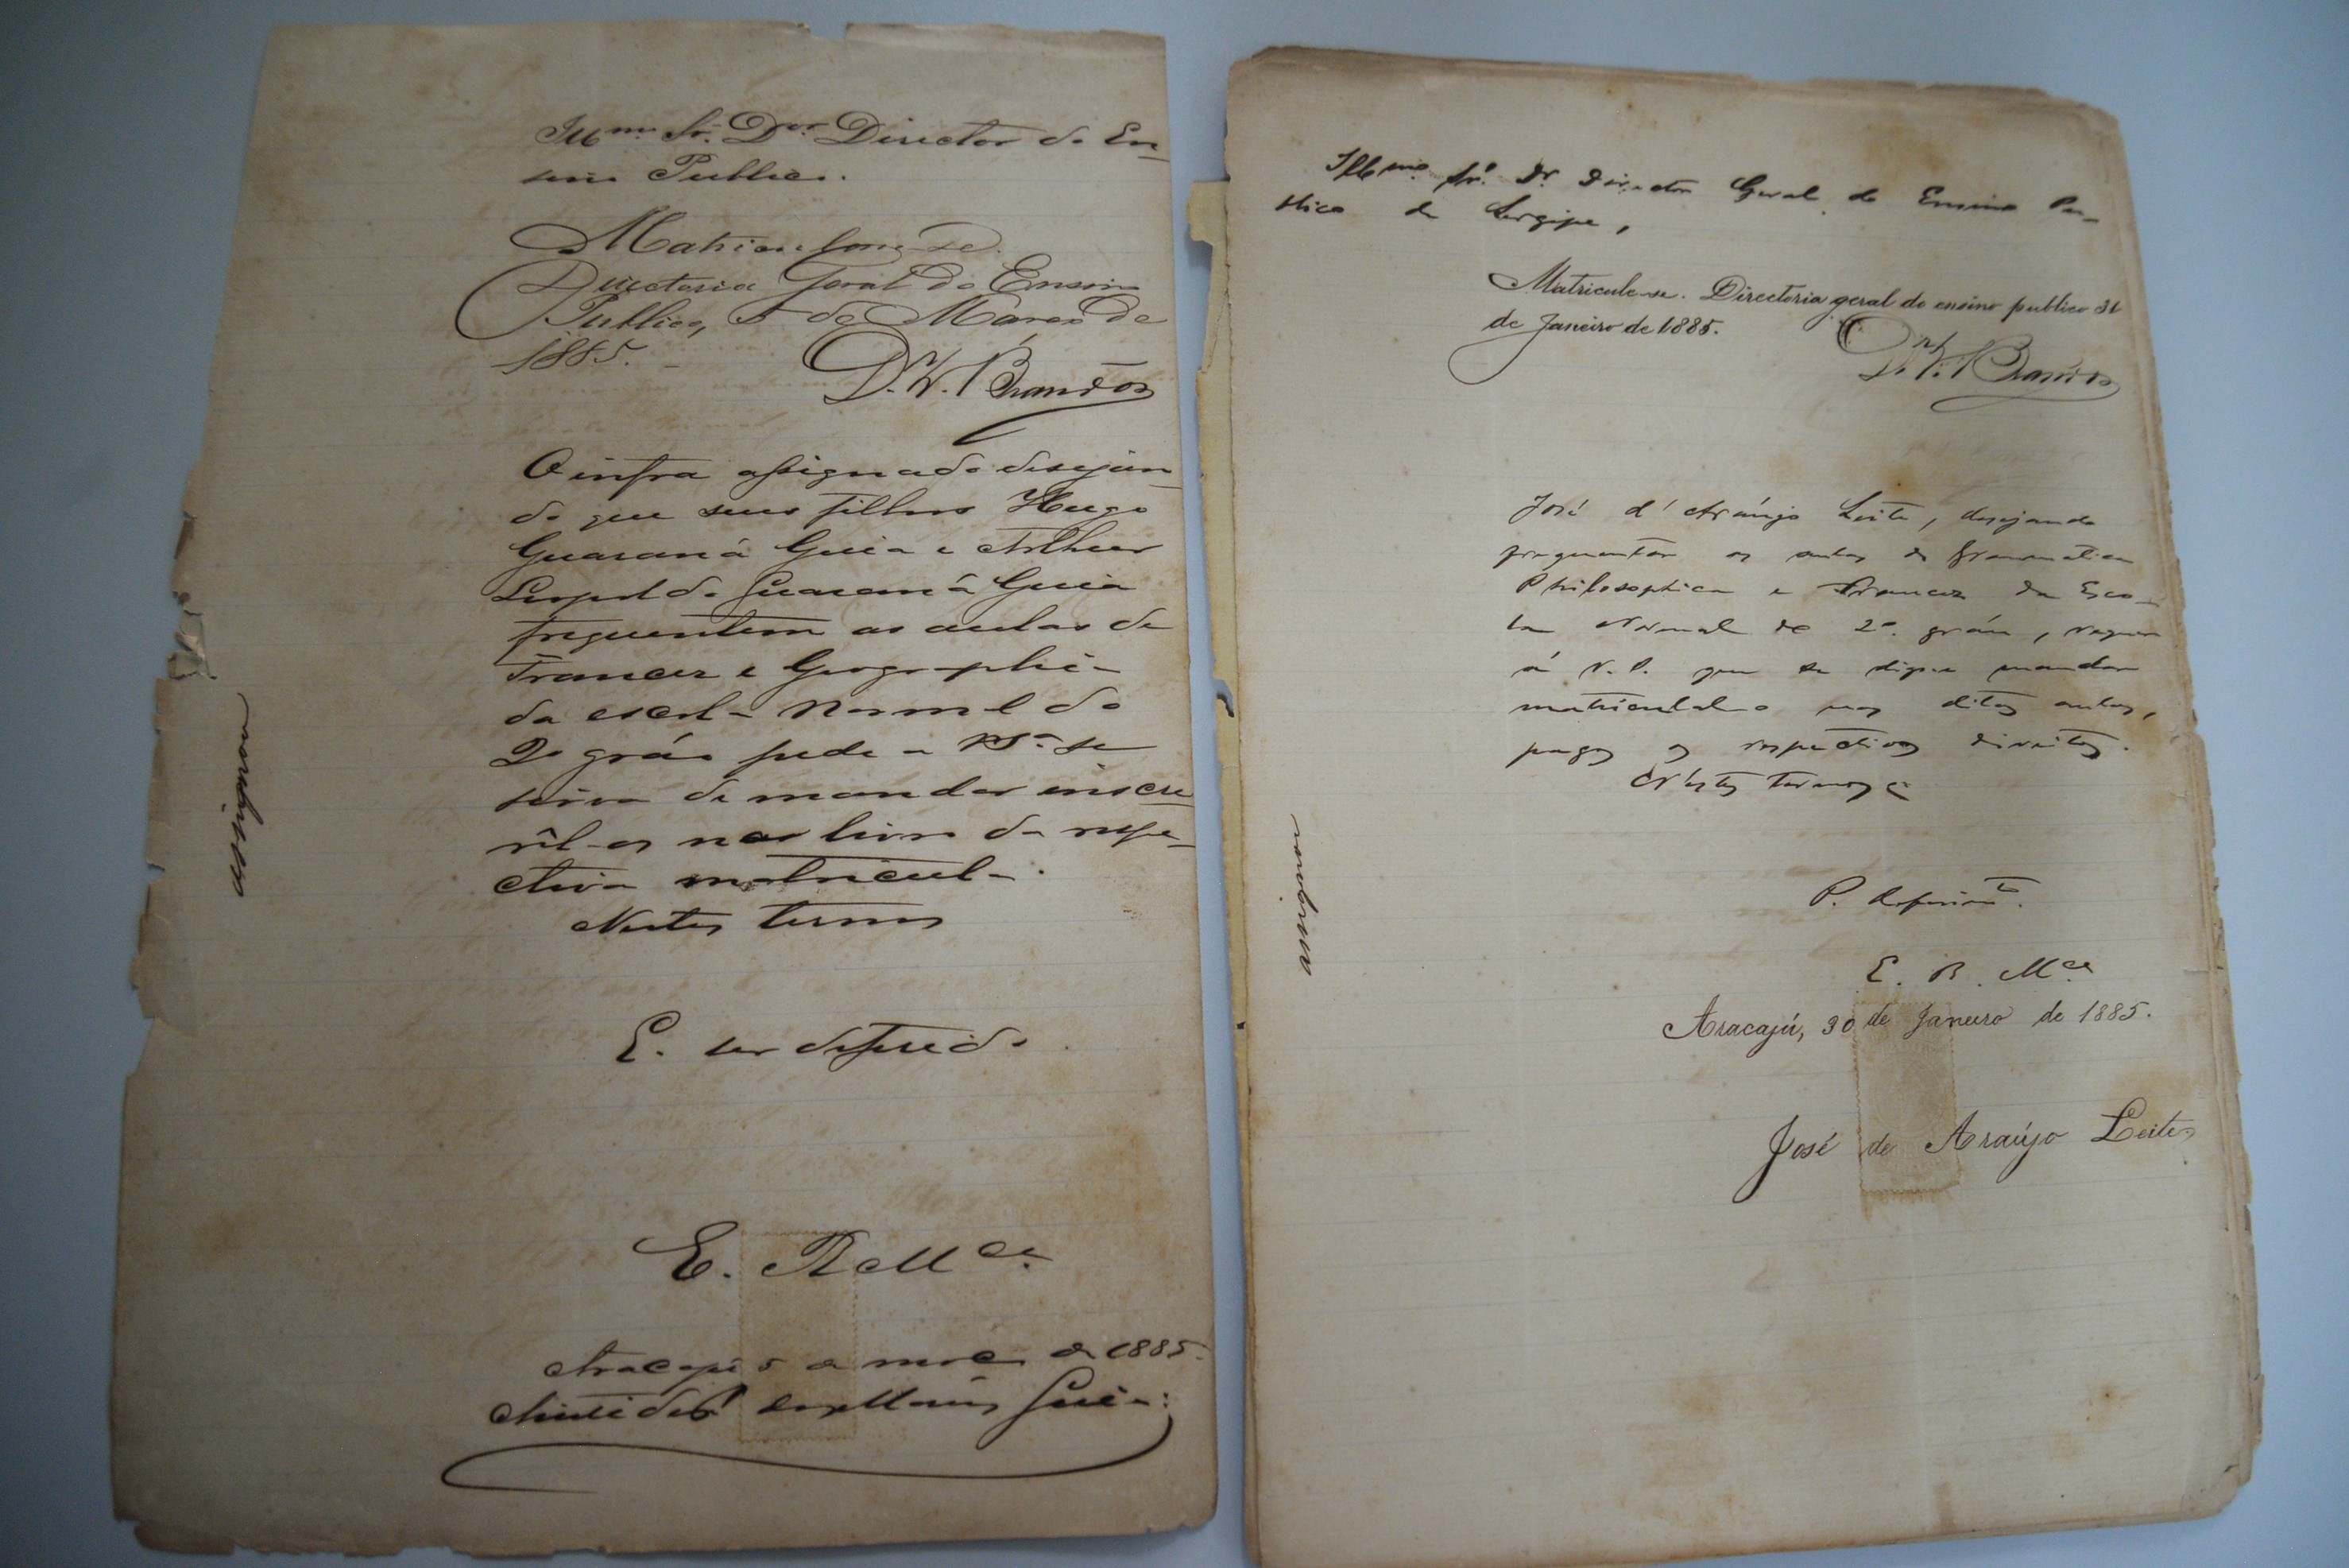 Illmo Sr. Dor Director do En-
sino Publico.
Matriculem-se.
Directoria Geral do Ensino
Publico, 5 de Março de
1885.
D. V. Brandão
O infra assignado desejan-
do que seus filhos Hugo
Guaraná Guia e Arthur
Leopoldo Guaraná Guia
frequentem as aulas de
Francez e Geographia
da escola Normal do
2o gráo pede a VSa se
sirva de mandar inscre-
vêl-os nos livro da respe-
ctiva matricula.
Nestes termos
E. ser deferido
E. R. Mce.
Aracajú 5 de março de 1885.
Guia
assignou
Illmo Sr. Dr. Director Geral do Ensino Pu-
blico de Sergipe,
Matricule-se. Directoria geral do ensino publico 31
de Janeiro de 1885.
D. V. Brandão
José d'Araújo Leite, desejando
frequentar as aulas de Grammatica
Philosophica e Francez da Esco-
la Normal do 2º. gráu, requer
á V. S. que se digne mandar
matriculal-o nas ditas aulas,
pagos os respectivos direitos.
N'estes termos
P. deferimto.
E. R. Mce
Aracajú, 30 de Janeiro de 1885.
José de Araújo Leite
assignou